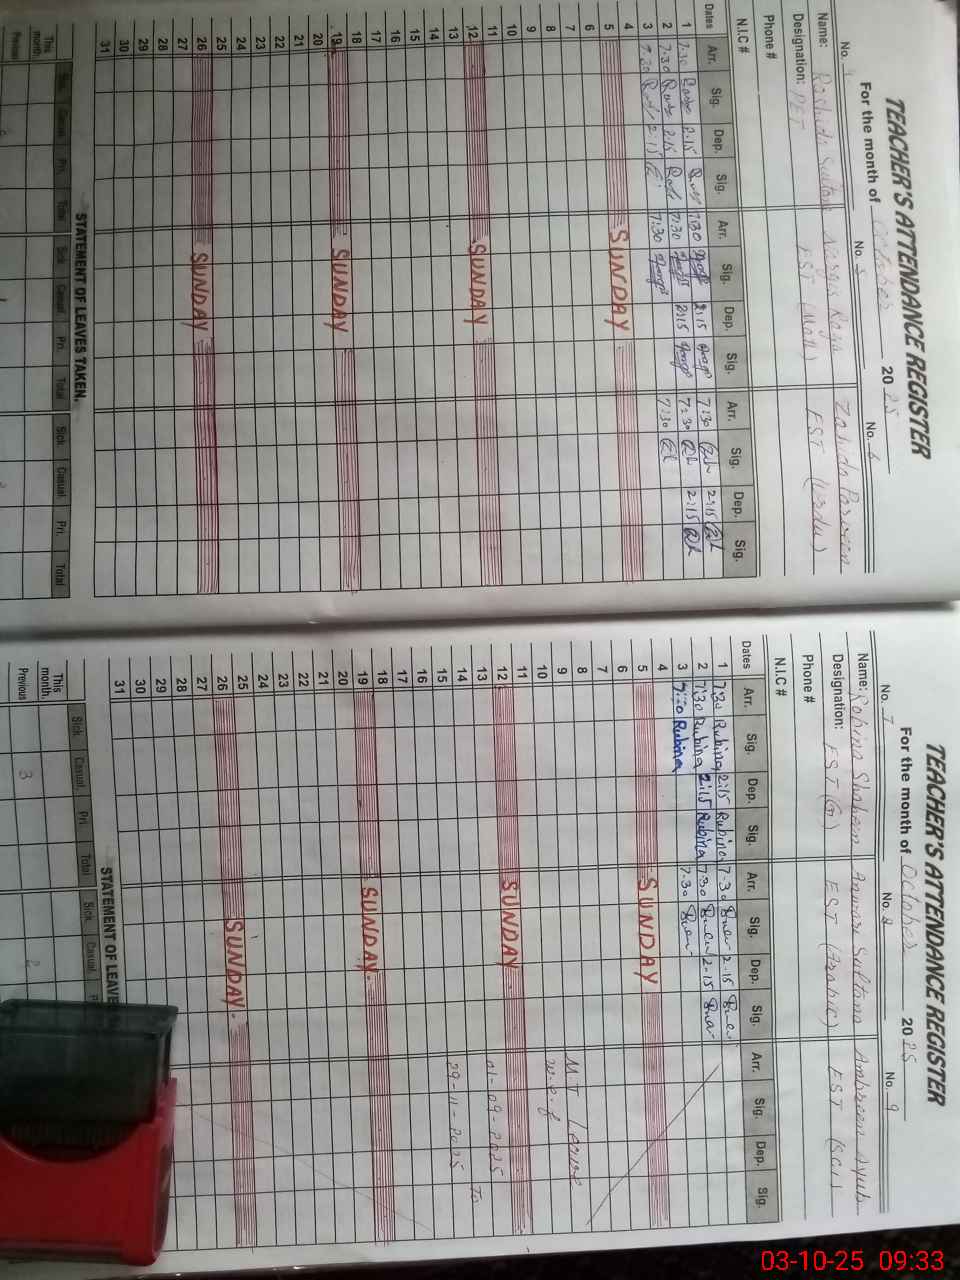 TEACHER'S ATTENDANCE REGISTER
For the month of October 2025
No. 4 No. 5 No. 6
Name: Rashida Sultana Nargis Raza Zahida Parveen
Designation: PET EST (Math) EST (Urdu)
Phone #
N.I.C #
Dates Arr. Sig. Dep. Sig. Arr. Sig. Dep. Sig. Arr. Sig. Dep. Sig.
1 7:30 2:15 7:30 2:15 7:30 2:15
2 7:30 2:15 7:30 2:15 7:30 2:15
3 7:30 2:15 7:30 7:30
4
5 SUNDAY
6
7
8
9
10
11
12 SUNDAY
13
14
15
16
17
18
19 SUNDAY
20
21
22
23
24
25
26 SUNDAY
27
28
29
30
31
STATEMENT OF LEAVES TAKEN.
Sick Casual Pri. Total Sick Casual Pri. Total Sick Casual. Pri. Total
This month.
Previous
TEACHER'S ATTENDANCE REGISTER
For the month of October 2025
No. 7 No. 8 No. 9
Name: Robina Shaheen Anwari Sultana Ambreen Ayub
Designation: EST (G) EST (Arabic) EST (Sci)
Phone #
N.I.C #
Dates Arr. Sig. Dep. Sig. Arr. Sig. Dep. Sig. Arr. Sig. Dep. Sig.
1 7:30 Rubina 2:15 Rubina 7:30 2:15
2 7:30 Rubina 2:15 Rubina 7:30 2:15
3 7:30 Rubina 7:30
4
5 SUNDAY
6
7
8
9 MT Leave
10 w.e.f
11
12 SUNDAY
13 01-09-2025 To
14
15 29-11-2025
16
17
18
19 SUNDAY
20
21
22
23
24
25
26 SUNDAY.
27
28
29
30
31
STATEMENT OF LEAVE
Sick Casual. Pri. Total Sick Casual.
This month.
Previous 3
03-10-25 09:33